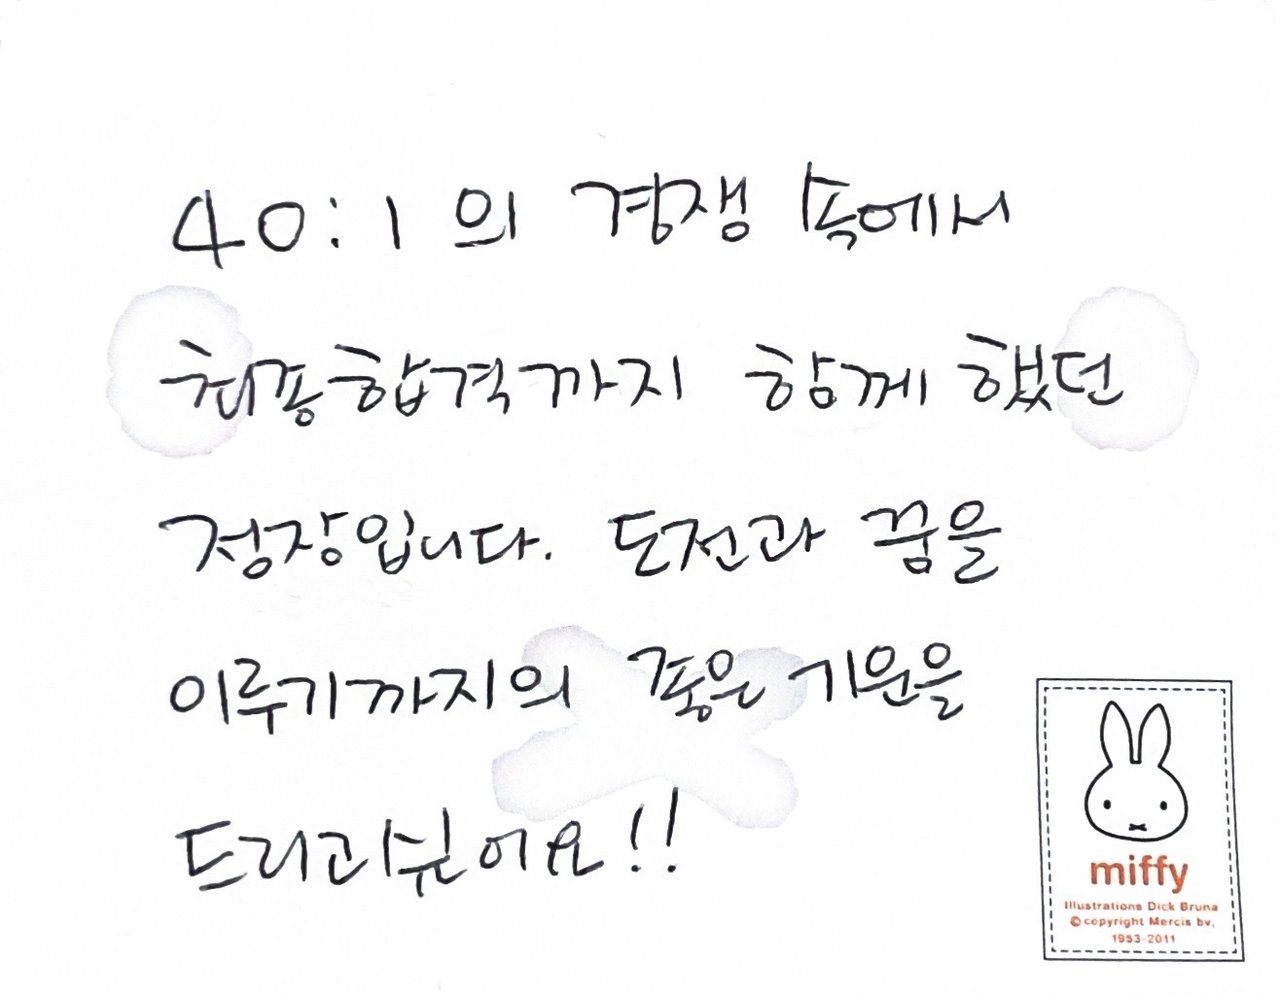 40:1 의 경쟁 속에서
최종합격까지 함께 했던
정장입니다. 도전과 꿈을
이루기까지의 좋은 기운을
드리고싶어요!!
miffy
Illustrations Dick Bruna
© copyright Mercis bv,
1953-2011